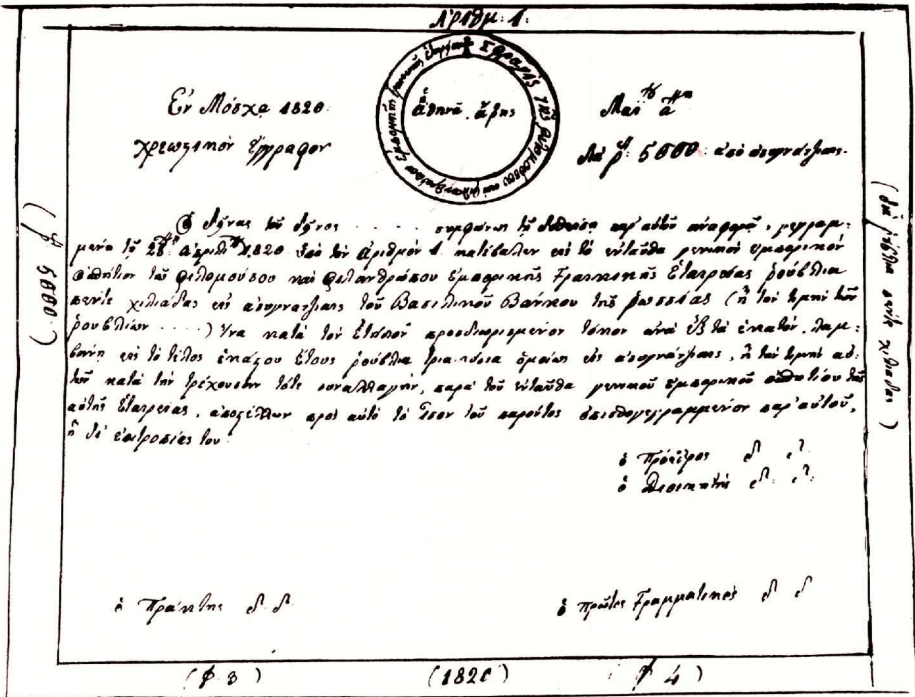 Ἀριθμ: 1.
Σφραγὶς τῆς φιλομούσου καὶ φιλανθρώπου ἐμπορικῆς γραικικῆς ἑταιρίας
ἀθηνᾶ. ἄρης
Ἐν Μόσχᾳ 1820
Μαΐ του α μη
χρεωστικὸν ἔγγραφον
διὰ ρ: 5000: ἀπὸ ἀσιγνάτζιαις
Ὁ δεῖνας τοῦ δεῖνος . . . . . συμφώνως τῇ δοθείσῃ παρ' αὐτοῦ ἀναφορᾷ, γεγραμ-
μένῃ τῇ 28 ἀπριλ 1820 ὑπὸ τὸν ἀριθμὸν 1. κατέβαλεν εἰς τὸ ἐνταῦθα γενικὸν ἐμπορικὸν
σπήτιον τῆς φιλομούσου καὶ φιλανθρώπου ἐμπορικῆς Γραικικῆς Ἑταιρείας ῥούβλια
πέντε χιλιάδας εἰς ἀσιγνάτζιαις τοῦ Βασιλικοῦ Βάνκου τῆς ῥωσσίας (ἢ τὴν τιμὴν τῶν
ῥουβλίων . . . . .) ἵνα κατὰ τὸν ἐτήσιον προσδιωρισμένον τόκον ἀνὰ ἓξ τὰ ἑκατὸν, λαμ-
βάνῃ εἰς τὸ τέλος ἑκάστου ἔτους ῥούβλια τριακόσια ὁμοίως εἰς ἀσιγνάτζιαις, ἢ τὴν τιμὴν αὐ-
τῶν κατὰ τὴν τρέχουσαν τότε συναλλαγὴν, παρὰ τοῦ ἐνταῦθα γενικοῦ ἐμπορικοῦ σπητίου τῆς
αὐτῆς Ἑταιρείας, ἀποστέλλων πρὸς αὐτὸ τὸ ἴσον τοῦ παρόντος ὀπισθογεγραμμένον παρ' αὐτοῦ,
ἢ δι' ἐπιτροπίας του
ὁ Πρόεδρος δ. δ.
ὁ Διοικητὴς δ. δ.
ὁ Πράκτης δ. δ.
ὁ πρῶτος Γραμματικὸς δ δ
(ρ 5000)
(διὰ ῥούβλια πέντε χιλιάδας)
(φ 3)
(1820)
(φ 4)